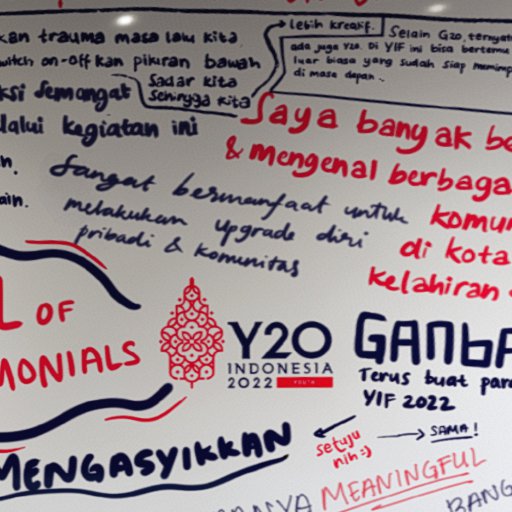 kan trauma masa lalu kita
on-off kan pikiran bawah
Sadar kita
Sehingga kita
lebih kreatif.
Selain G20, ternyata
ada juga Y20. Di YIF ini bisa bertemu
luar biasa yang sudah siap memimp
di masa depan.
ksi Semangat
lalui kegiatan ini
Saya banyak be
& mengenal berbaga
komun
di kota
kelahiran
Sangat bermanfaat untuk
melakukan upgrade diri
pribadi & komunitas
L OF
MONIALS
Y20
INDONESIA
2022 YOUTH
GANBA
Terus buat par
YIF 2022
MENGASYIKKAN
setuju
nih :)
SAMA!
MEANINGFUL
BANG